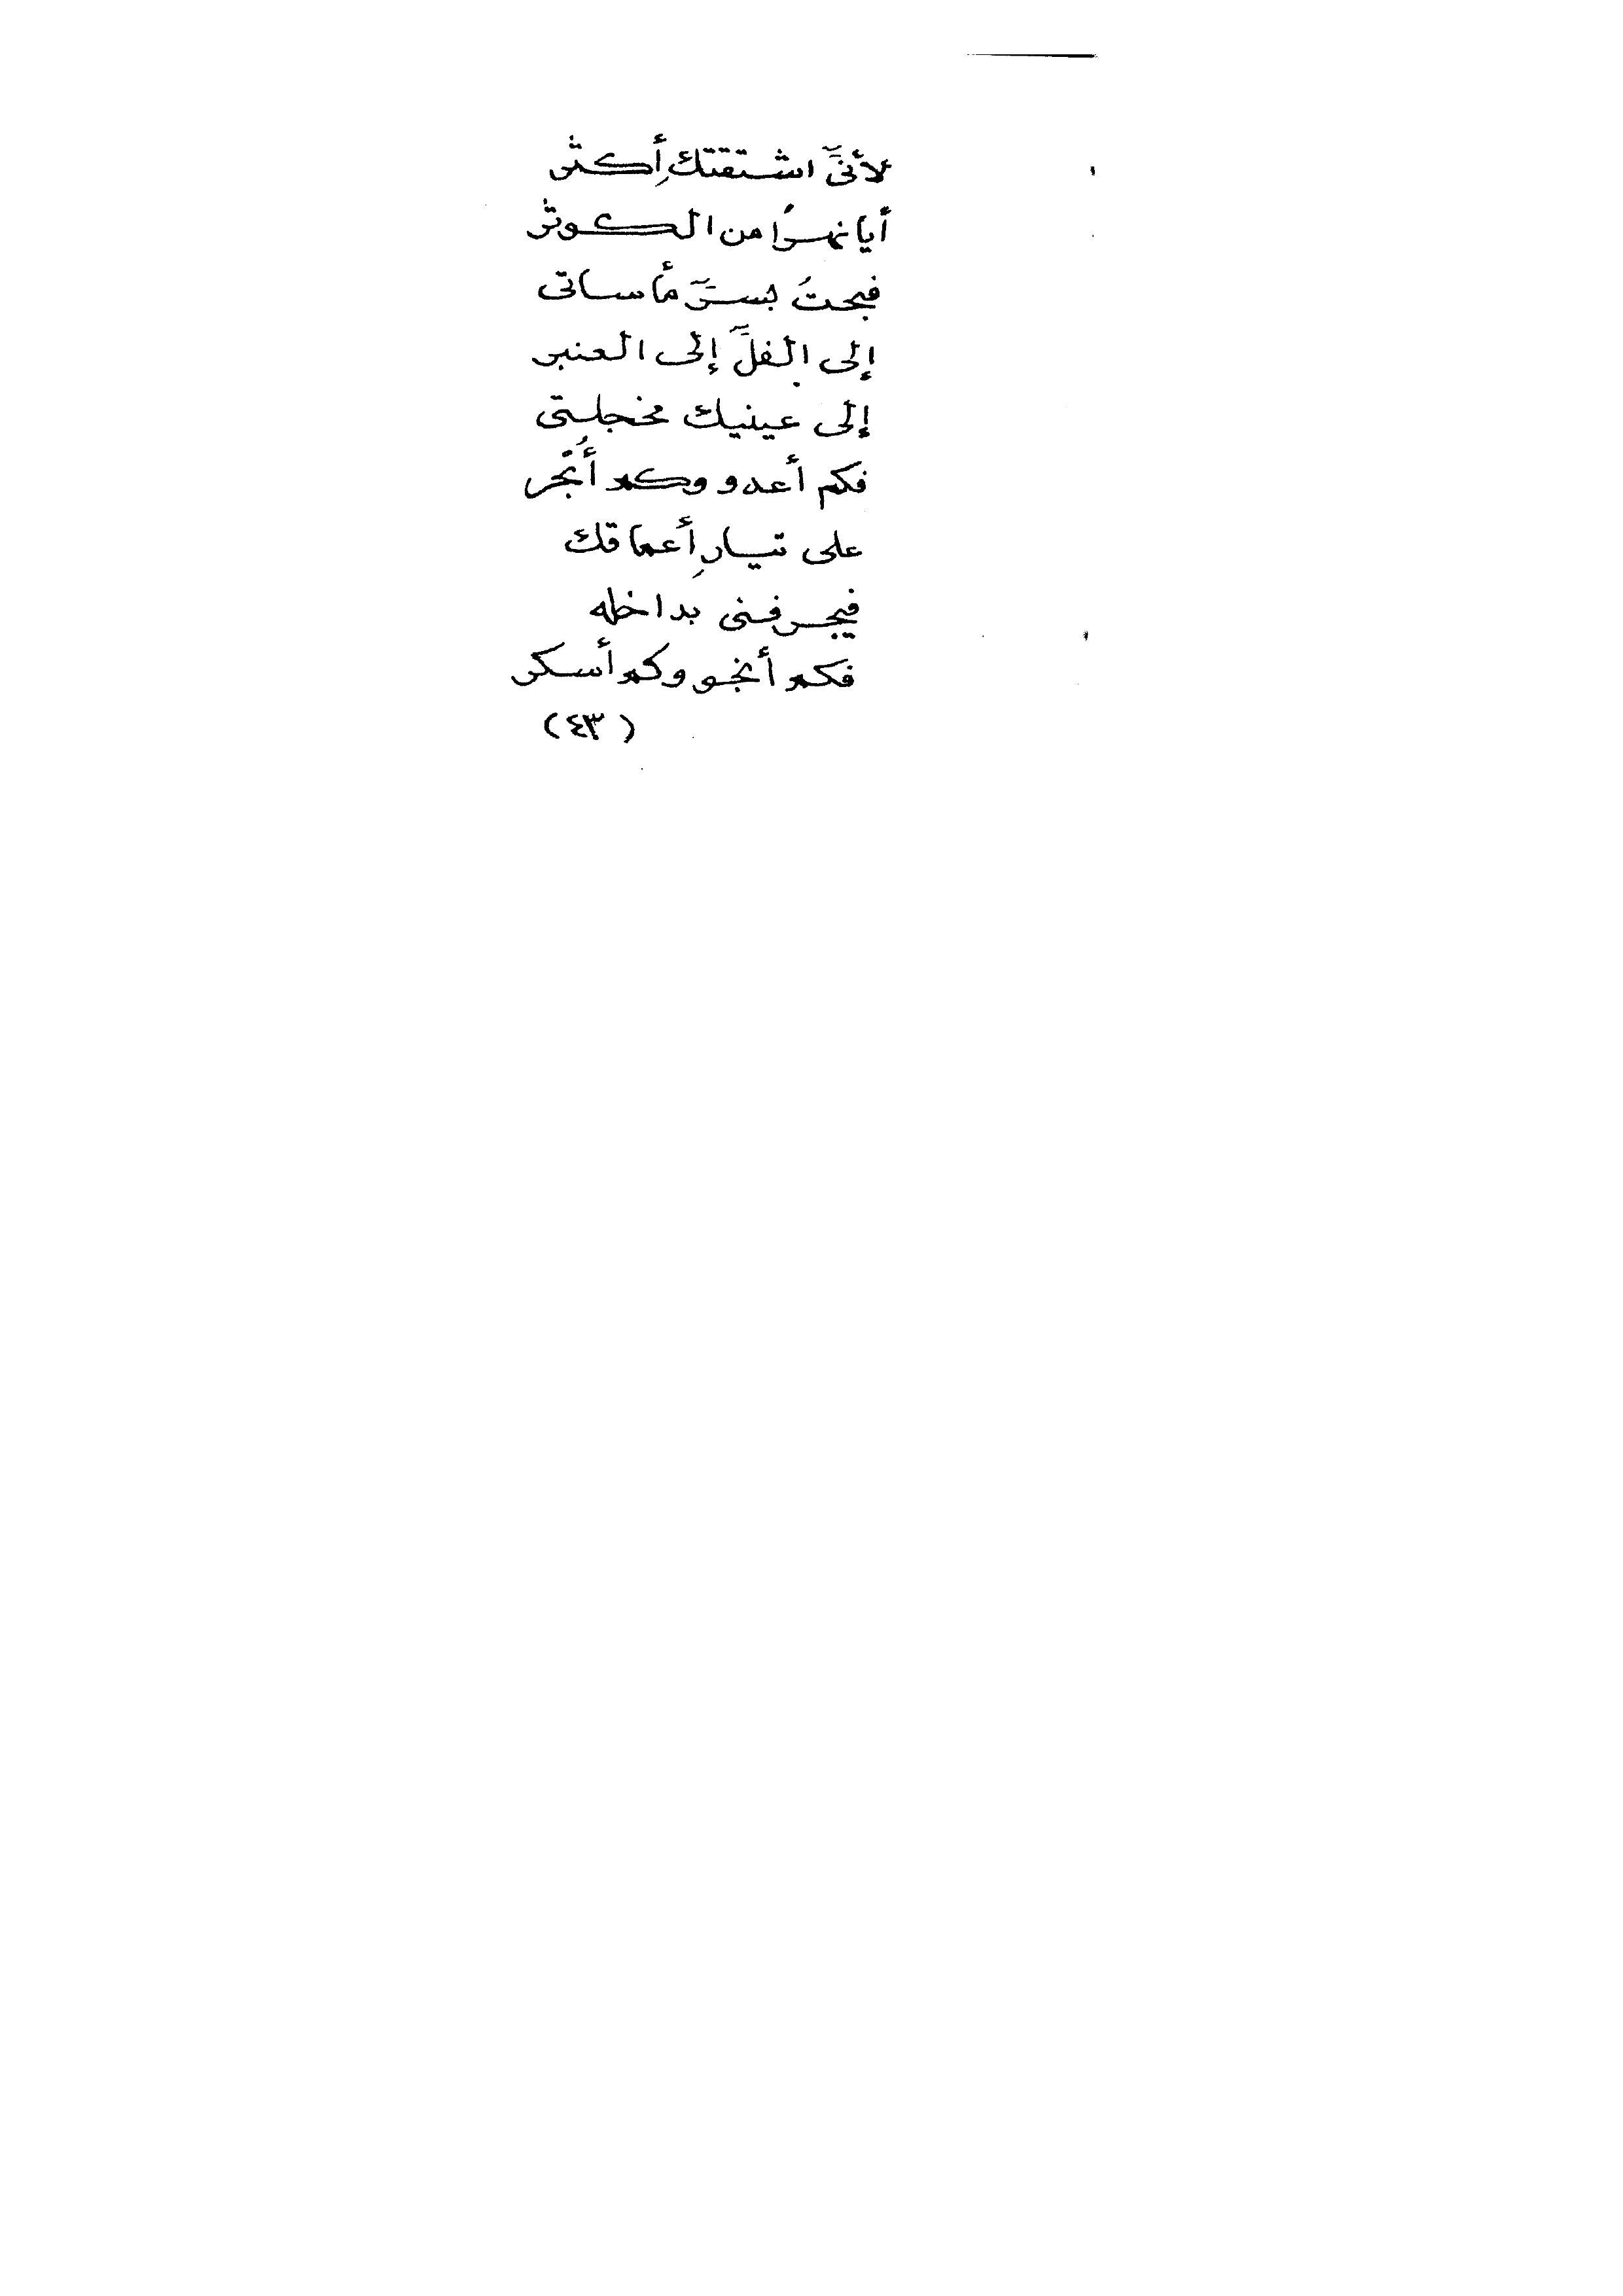 لأنىِّ اشتقتكِ أكثر
أيا نهرًا من الكوثر
فبحتُ بسرِّ مأساتى
إلى الفلِّ إلى العنبر
إلى عينيك مخجلتى
فكم أعدو وكم أُبحر
على تيارِ أعماقك
فيجرفنى بداخله
فكم أنجو وكم أسكر
(٤٣)